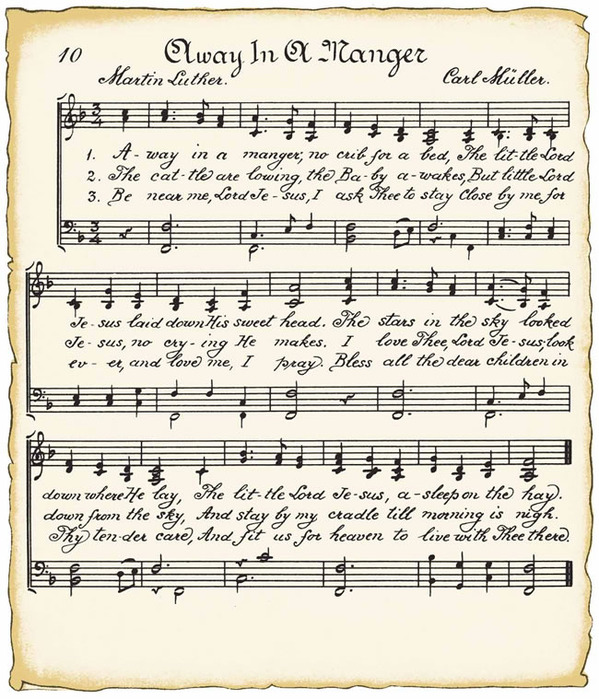 10 Away In A Manger
Martin Luther. Carl Müller.
3/4
1. A-way in a manger, no crib for a bed, The lit-tle Lord
2. The cat-tle are lowing, the Ba-by a-wakes, But little Lord
3. Be near me, Lord Je-sus, I ask Thee to stay Close by me, for
3/4
Je-sus laid down His sweet head. The stars in the sky looked
Je-sus, no cry-ing He makes. I love Thee, Lord Je-sus, look
ev-er, and love me, I pray. Bless all the dear children in
down where He lay, The lit-tle Lord Je-sus, a-sleep on the hay.
down from the sky, And stay by my cradle till morning is nigh.
Thy ten-der care, And fit us for heaven to live with Thee there.